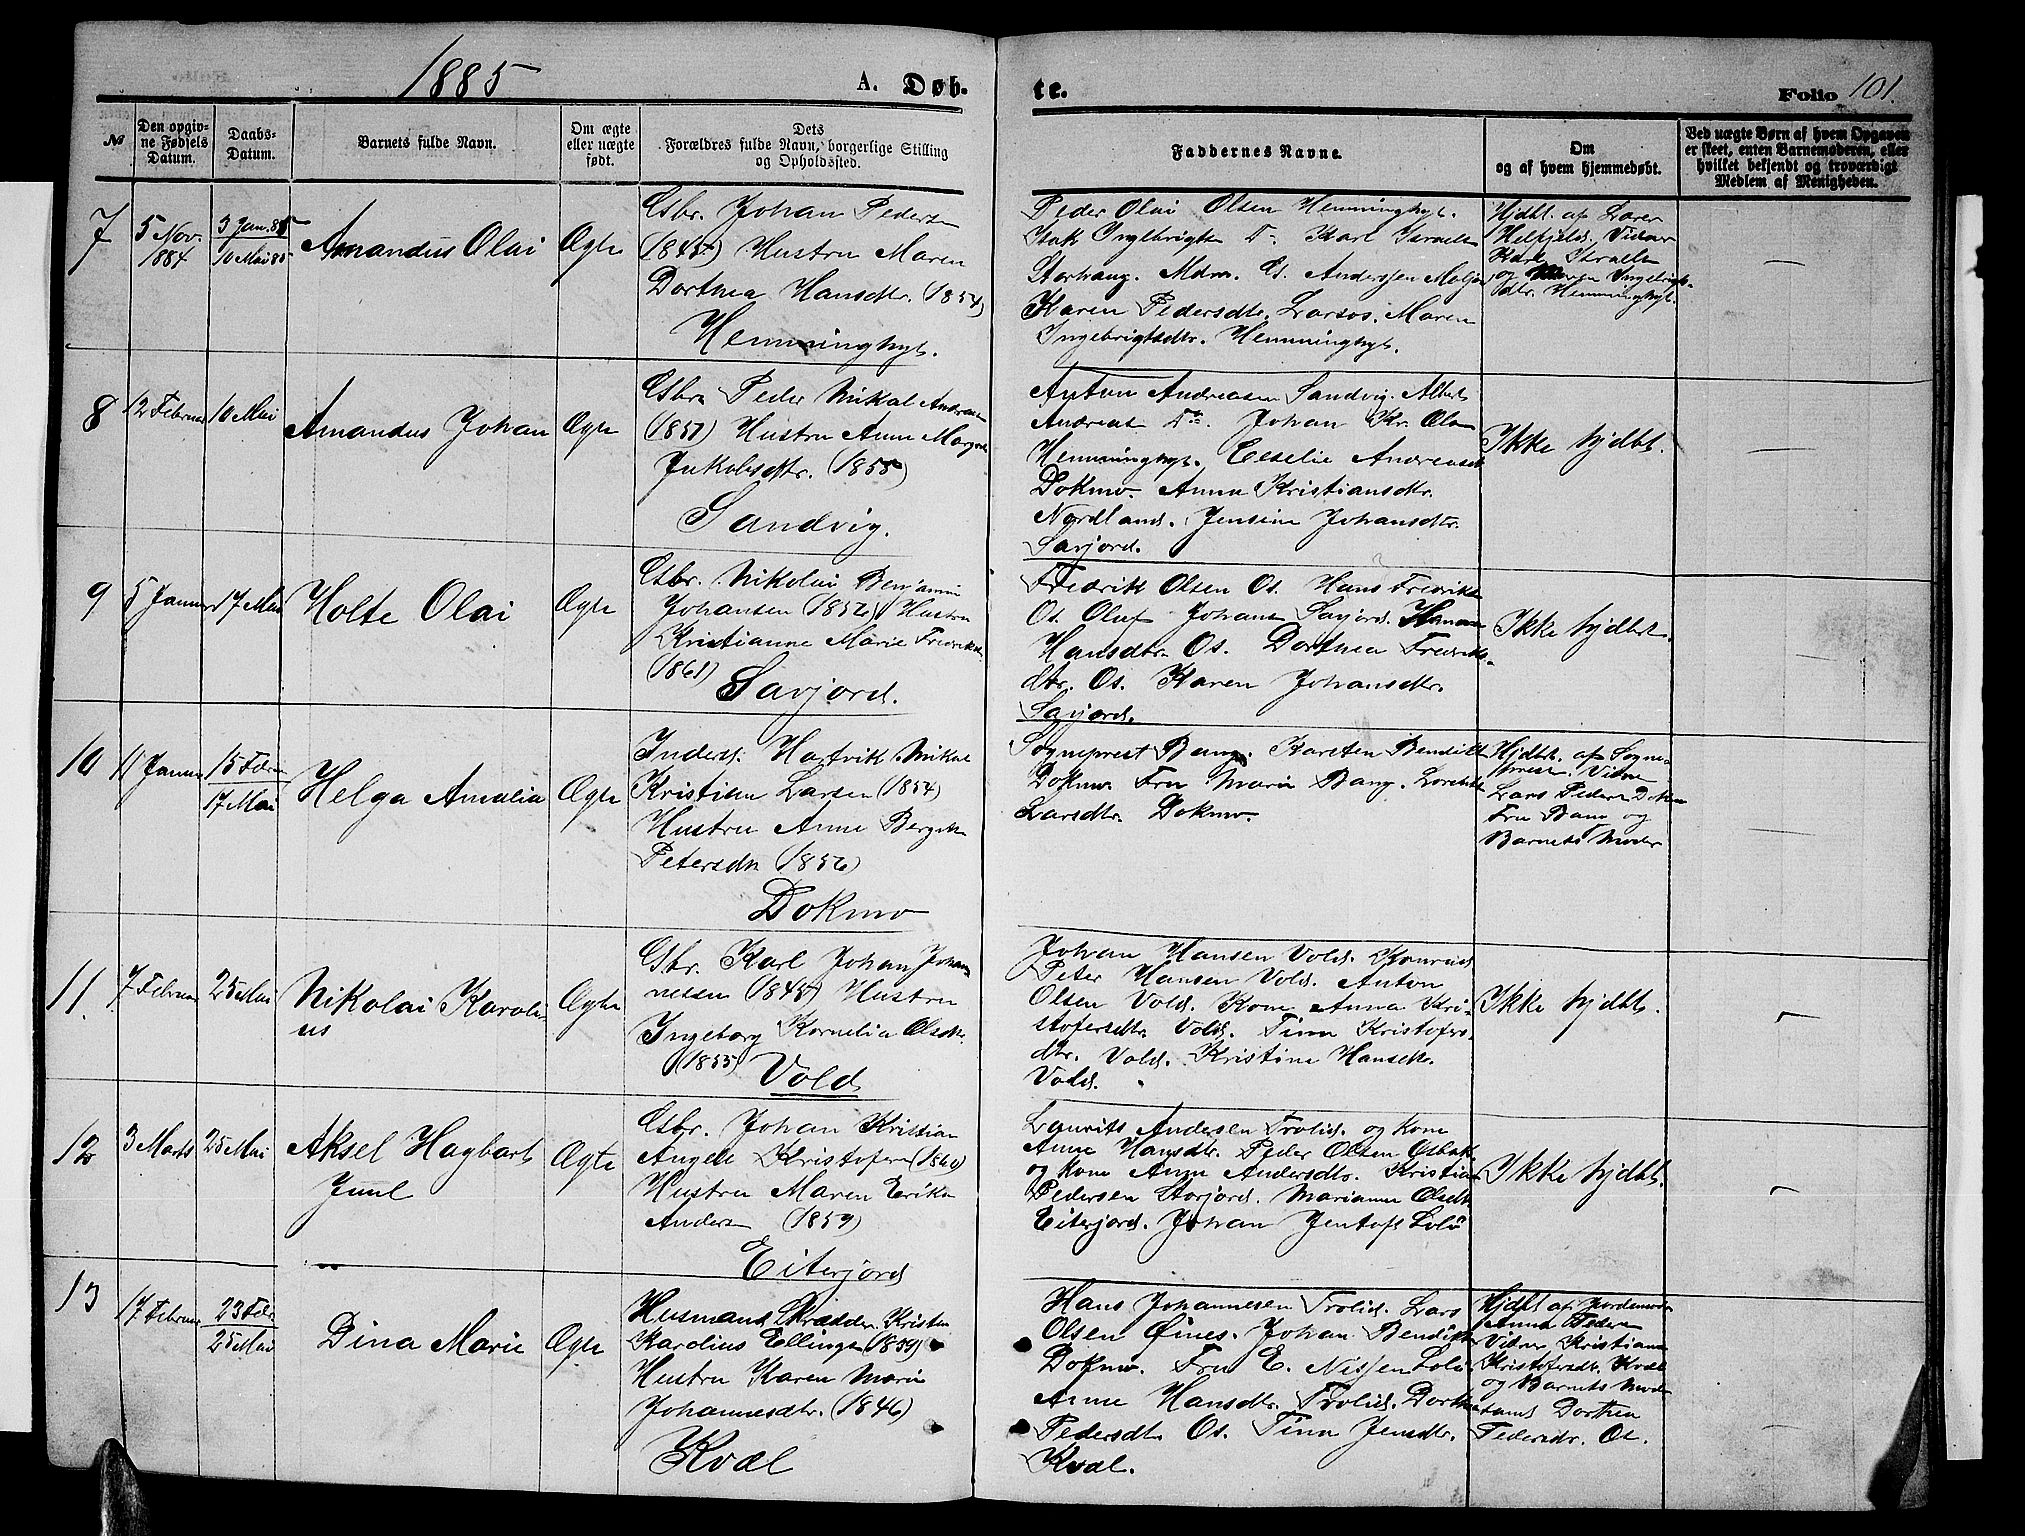 1885
A. Døb-
te.
Folio 101.
№
Den opgiv-
ne Fødsels
Datum.
Daabs-
Datum.
Barnets fulde Navn.
Om ægte
eller uægte
født.
Dets
Forældres fulde Navn, borgerlige Stilling
og Opholdssted.
Faddernes Navne.
Om
og af hvem hjemmedøbt.
Ved uægte Børn af hvem Opgaven
er skeet, enten Barnemoderen, eller
hvilket bekjendt og troværdigt
Medlem af Menigheden.
7
5 Nov.
1884
3 Jan. 85
10 Mai 85
Amandus Olai
Ægte
Gbr. Johan Peders
(1845) Hustru Maren
Dorthea Hansdtr. (1854)
Hemminghyt.
Peder Olai Olsen Hemminghyt.
Isak Ingebrigts Do Karl Israels
Storhaug. Mdm. Andersen
Karen Pedersdtr. Larsos. Maren
Ingebrigtsdtr. Hemminghyt.
Hjdbt. af Lærer
Helfjeld. Vidner
Karl Israels
og Maren Ingebrigts-
dtr. Hemminghyt.
—
8
12 Februar
10 Mai
Amandus Johan
Ægte
Gbr. Peder Nikal Andreas
(1857) Hustru Anne Margrete
Jakobsdtr. (1855)
Sandvig.
Anton Andreasen Sandvig. Albert
Andreas Do. Johan Kr. Ols
Hemminghyt. Andreasdt
Dokmo. Anna Kristiansdtr.
Nordland. Jensine Johansdtr.
Savjord.
Ikke hjdbt.
—
9
5 Januar
17 Mai
Holte Olai
Ægte
Gbr. Nikolai Benjamin
Johansen (1852) Hustru
Kristianne Marie Fredriksd
(1861)
Savjord.
Fredrik Olsen Os. Hans Fredriks
Os. Oluf Johans Savjord. Hanna
Hansdtr. Os. Dorthea Fredriks-
dtr. Os. Karen Johansdtr.
Savjord.
Ikke hjdbt.
—
10
11 Januar
15 Febru
17 Mai
Helga Amalia
Ægte
Inders. Hartvik Mikal
Kristian Larsen (1854)
Hustru Anne Bergit
Petersdtr (1856)
Dokmo
Sogneprest Bang. Karsten Bendikt
Dokmo Fru Marie Bang.
Larsdtr. Dokmo.
Hjdbt. af Sogne-
prest. Vidne
Lars Peders Dokmo
Fru Bang og
Barnets Moder
—
11.
7 Februar
25 Mai
Nikolai Karoli-
us
Ægte
Gbr. Karl Johan Johan-
nessen (1845) Hustru
Ingeborg Kornelia Olsdtr.
(1855)
Vold
Johan Hansen Vold. Konrad
Peter Hansen Vold. Anton
Olsen Vold. Kone Anna Kri-
stofersdtr. Vold. Tina Kristofers-
dtr. Vold. Kristine Hansdtr.
Vold.
Ikke hjdbt.
—
12
3 Marts
25 Mai
Aksel Hagbart
Juul
Ægte
Gbr. Johan Kristian
Angell Kristofers (1860)
Hustru Maren Erika
Anders (1859)
Eiterjord
Laurits Andersen Trolid. og Kone
Anne Hansdtr. Peder Olsen Osbak
og Kone Anne Andersdtr. Kristian
Pedersen Storjord. Marianne Olsdtr
Eiterjord. Johan Jentoft
Ikke hjdbt.
—
13
17 Februar
23 Febr
25 Mai
Dina Marie
Ægte
Husmand, Skrædder. Kristen
Karolius Ellings (1859)
Hustru Karen Marie
Johannesdtr. (1846)
Kvæl
Hans Johannesen Trolid. Lars
Olsen Øines. Johan Bendikts
Dokmo. Fru E. Nissen
Anne Hansdtr. Trolid. Dorthea
Pedersdt. Os. Tina Jensdtr.
Kvæl.
Hjdbt af Jordemoder
Anna Peders
Vidner Kristiane
Kristofersdtr. Kvæl
og Barnets Moder
samt Dorthea
Pedersdtr. Os.
—